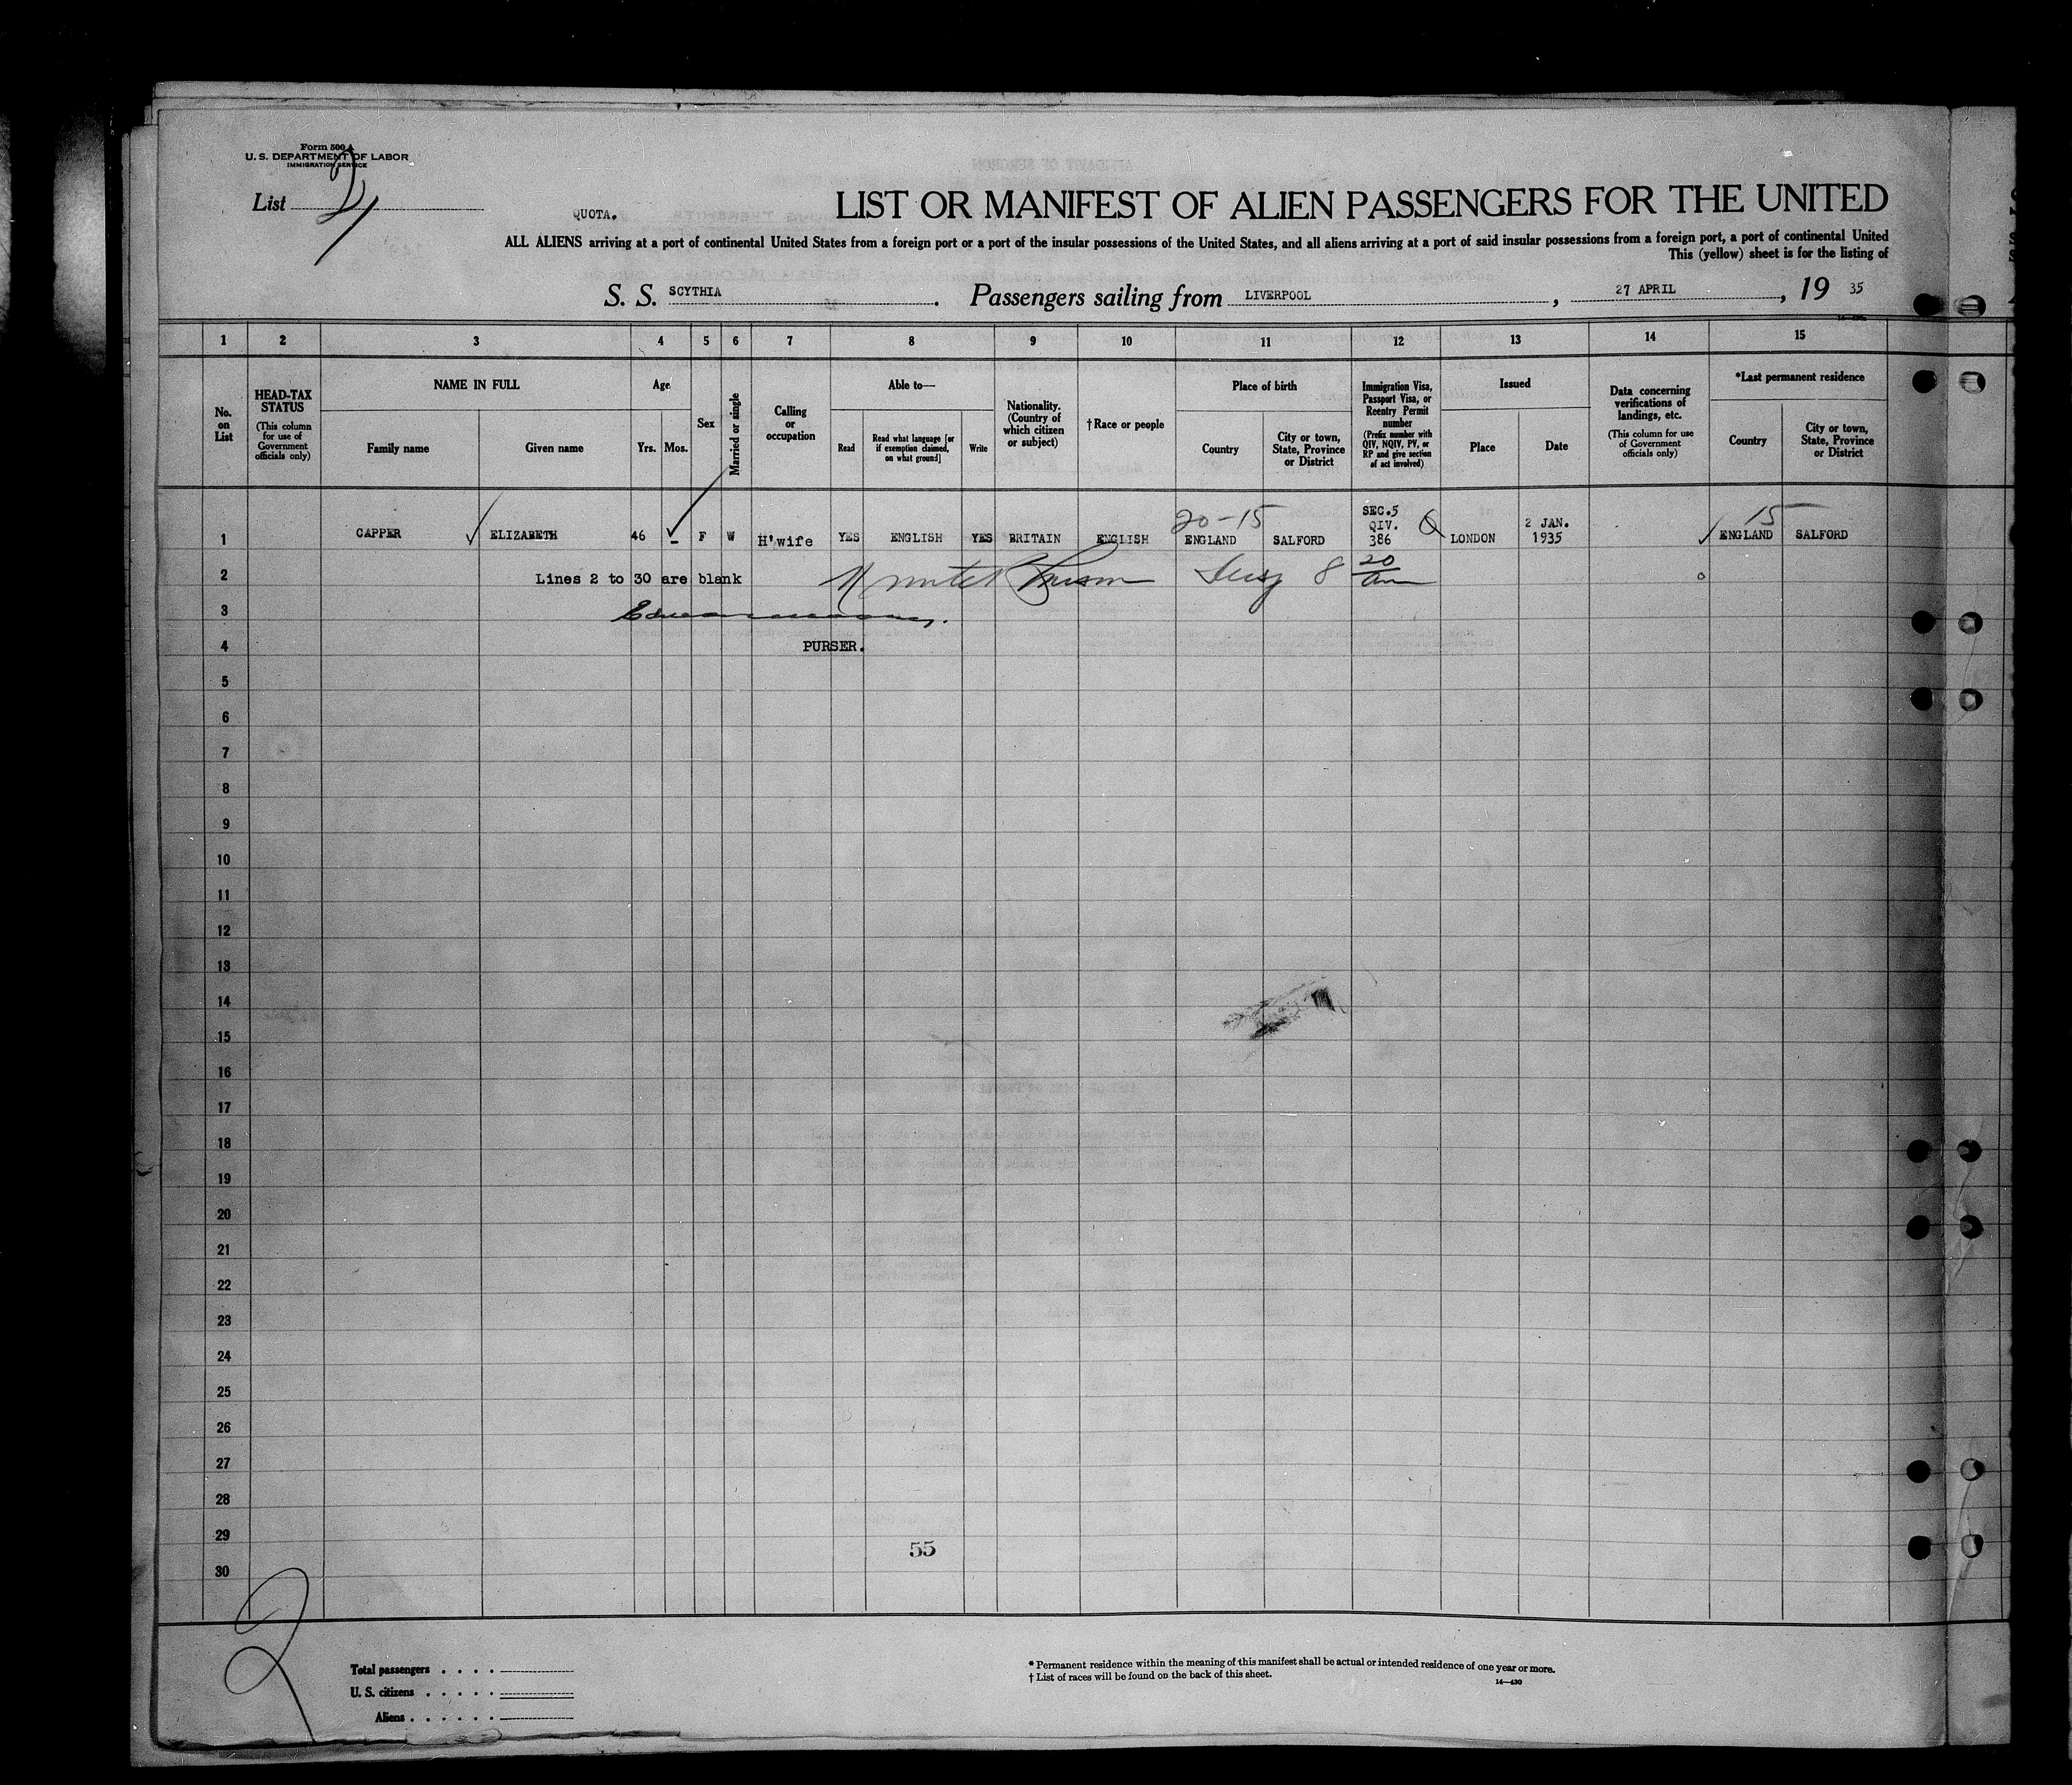 Form 500 A
U. S. DEPARTMENT OF LABOR
IMMIGRATION SERVICE
List
QUOTA.
LIST OR MANIFEST OF ALIEN PASSENGERS FOR THE UNITED
ALL ALIENS arriving at a port of continental United States from a foreign port or a port of the insular possessions of the United States, and all aliens arriving at a port of said insular possessions from a foreign port, a port of continental United
This (yellow) sheet is for the listing of
S. S. SCYTHIA . Passengers sailing from LIVERPOOL , 27 APRIL , 19 35
1 2 3 4 5 6 7 8 9 10 11 12 13 14 15
No. on List
HEAD-TAX STATUS
(This column for use of Government officials only)
NAME IN FULL
Family name
Given name
Age
Yrs.
Mos.
Sex
Married or single
Calling or occupation
Able to—
Read
Read what language [or if exemption claimed, on what ground]
Write
Nationality. (Country of which citizen or subject)
† Race or people
Place of birth
Country
City or town, State, Province or District
Immigration Visa, Passport Visa, or Reentry Permit number
(Prefix number with QIV, NQIV, PV, or RP and give section of act involved)
Issued
Place
Date
Data concerning verifications of landings, etc.
(This column for use of Government officials only)
*Last permanent residence
Country
City or town, State, Province or District
20-15
15
1 CAPPER ELIZABETH 46 - F W H'wife YES ENGLISH YES BRITAIN ENGLISH ENGLAND SALFORD SEC.5 QIV. 386 Q LONDON 2 JAN. 1935 ENGLAND SALFORD
2 Lines 2 to 30 are blank 8 20
3
4 PURSER.
5
6
7
8
9
10
11
12
13
14
15
16
17
18
19
20
21
22
23
24
25
26
27
28
29
55
30
2
Total passengers . . . .
U. S. citizens . . . . .
Aliens . . . . . .
* Permanent residence within the meaning of this manifest shall be actual or intended residence of one year or more.
† List of races will be found on the back of this sheet.
14—430